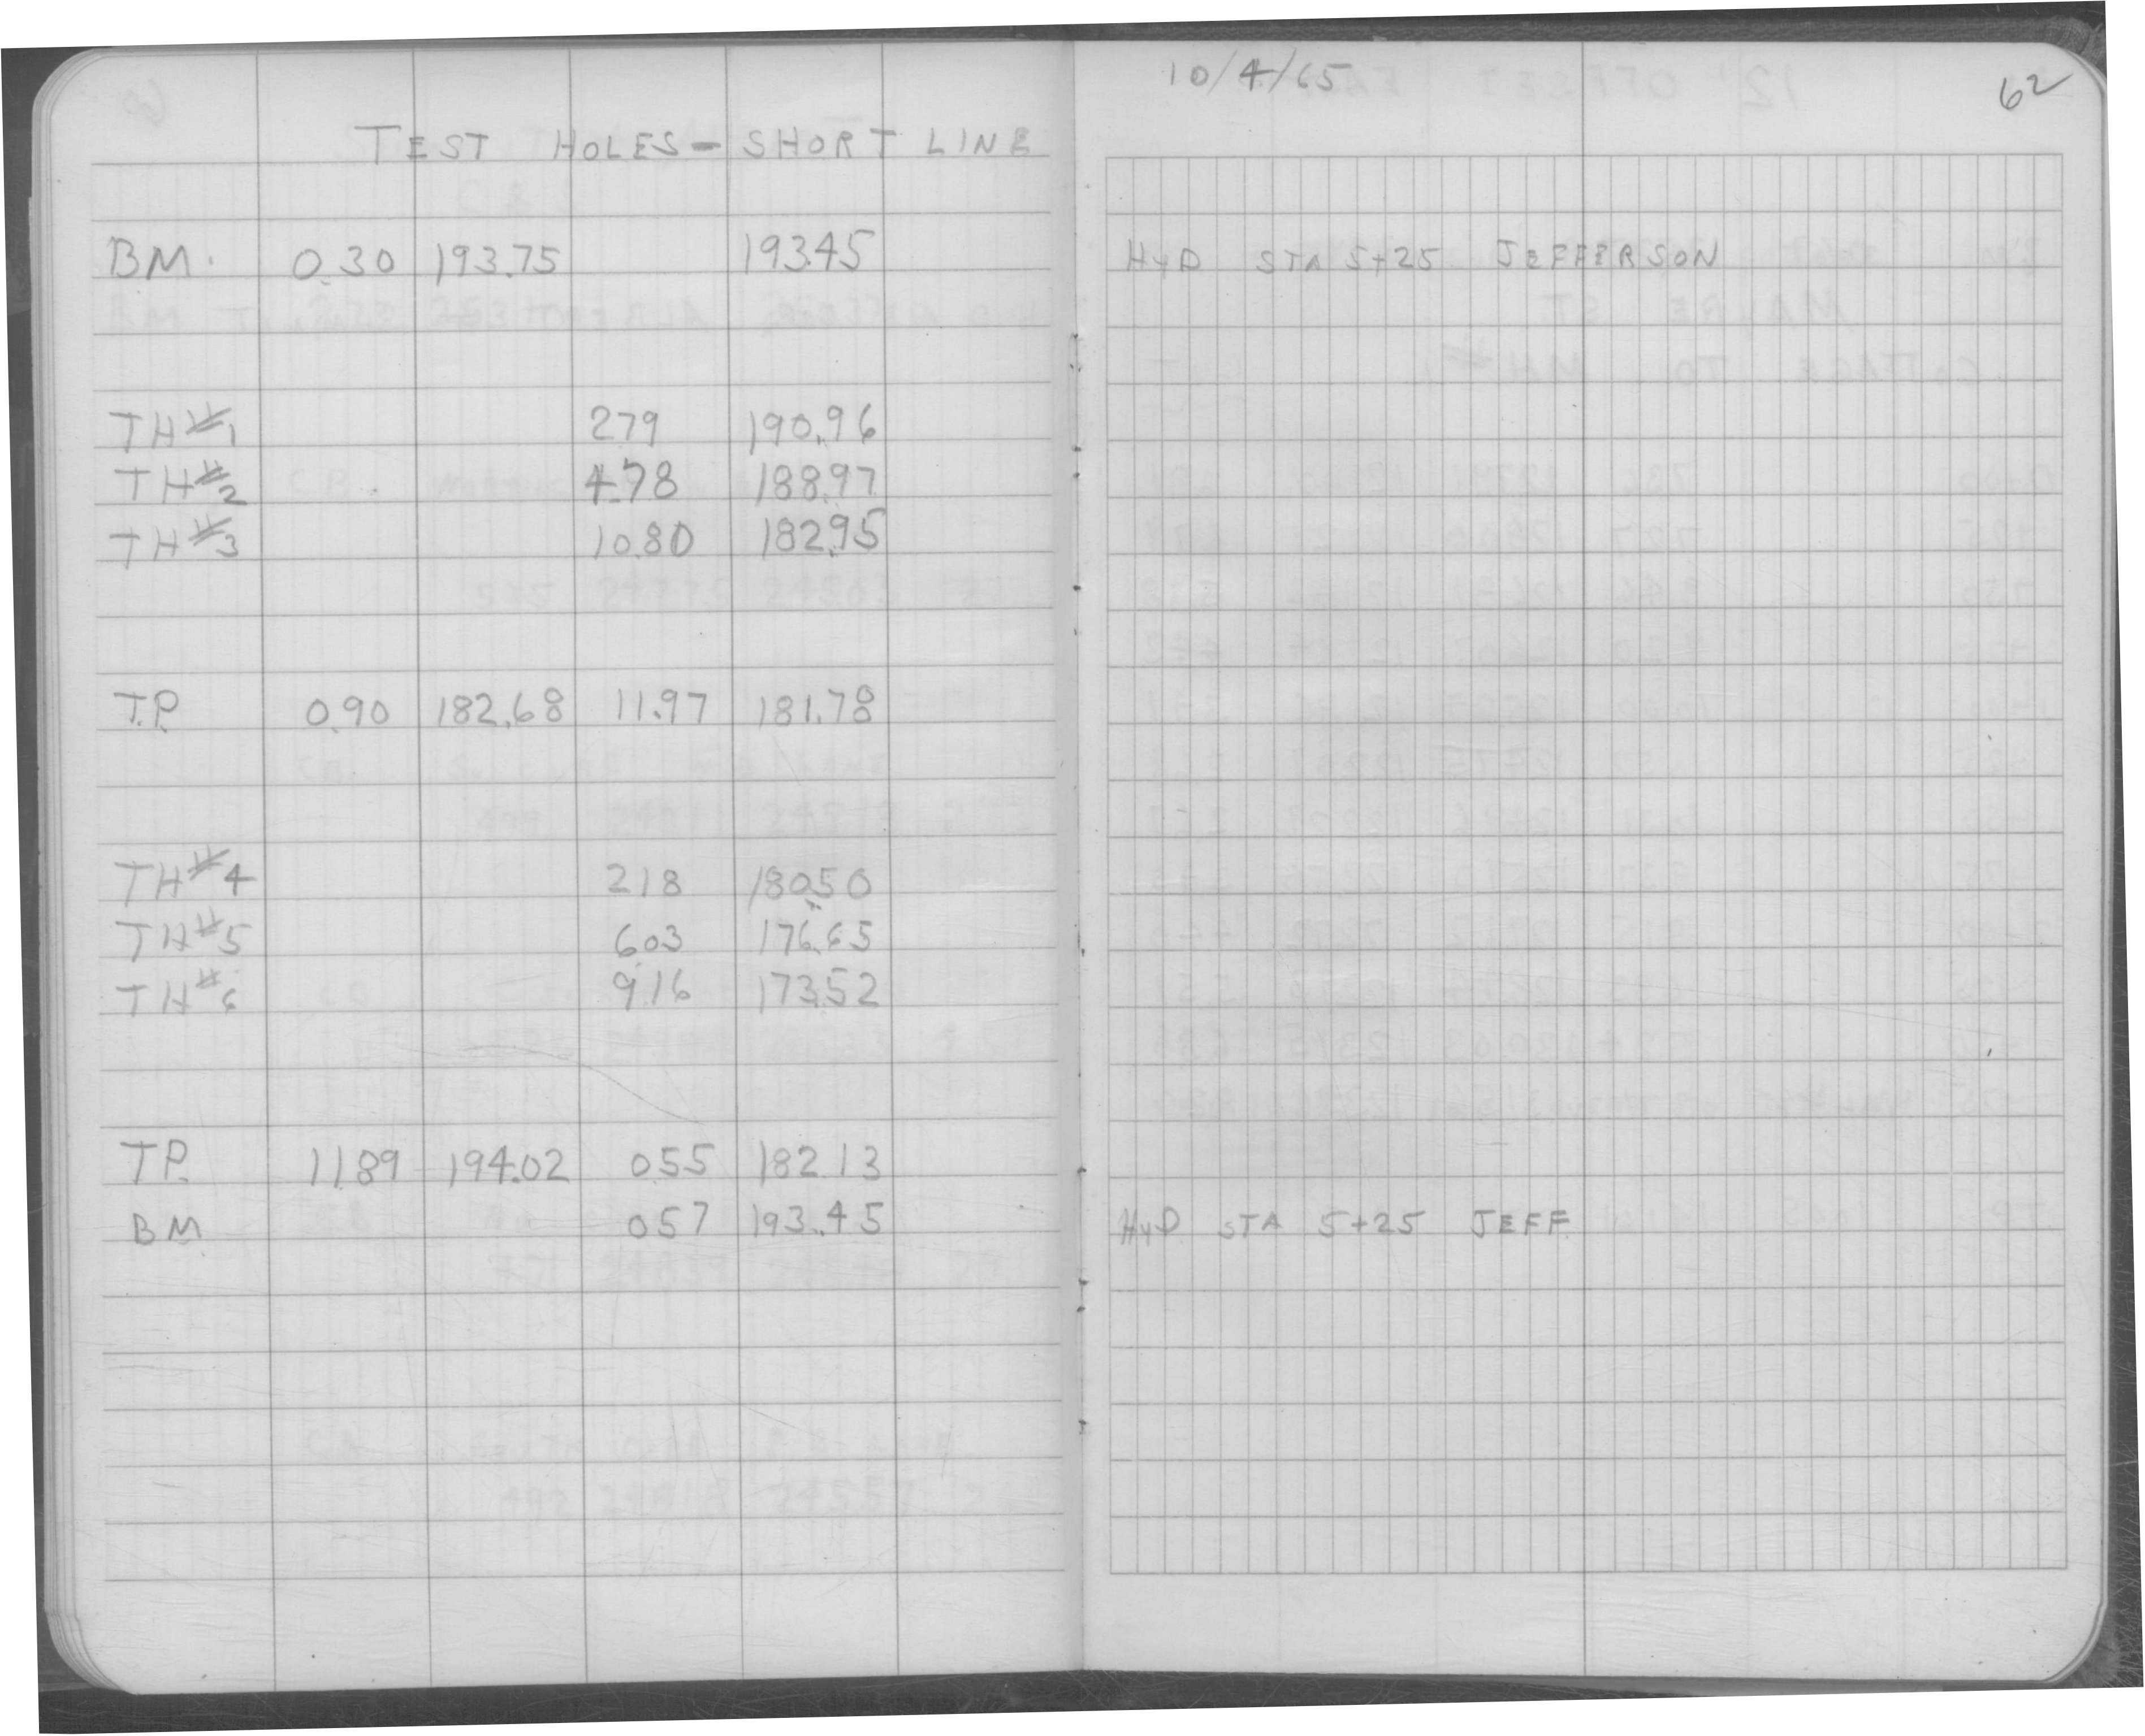 10/4/65 62
TEST HOLES - SHORT LINE
BM. 0.30 193.75 193.45 HYD STA 5+25 JEFFERSON
TH#1 2.79 190.96
TH#2 4.78 188.97
TH#3 10.80 182.95
T.P. 0.90 182.68 11.97 181.78
TH#4 2.18 180.50
TH#5 6.03 176.65
TH#6 9.16 173.52
TP. 11.89 194.02 0.55 182.13
BM 0.57 193.45 HYD STA 5+25 JEFF.